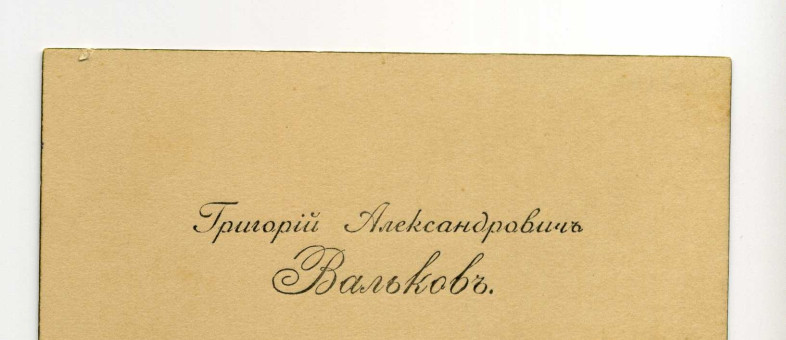 Григорій Александровичъ
Вальковъ.